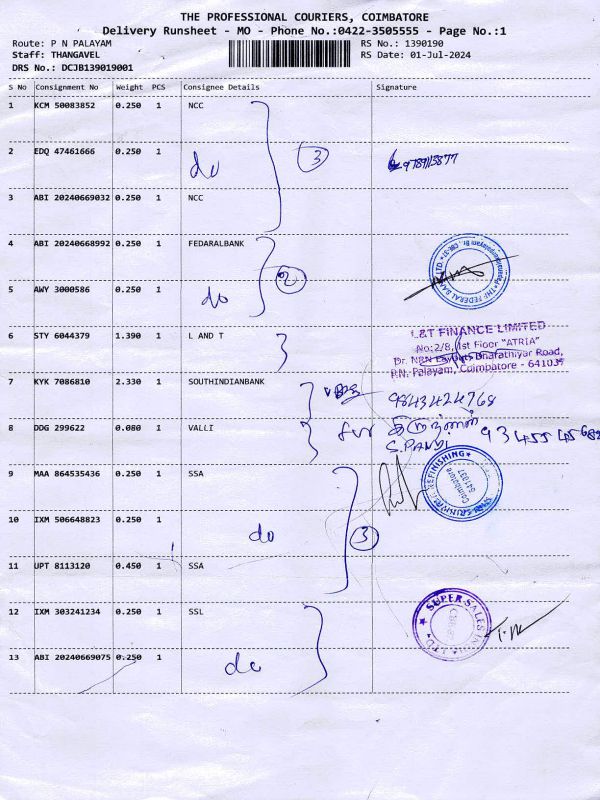 THE PROFESSIONAL COURIERS, COIMBATORE
Delivery Runsheet - MO - Phone No.:0422-3505555 - Page No.:1
Route: P N PALAYAM
RS No.: 1390190
Staff: THANGAVEL
RS Date: 01-Jul-2024
DRS No.: DCJB139019001
S No Consignment No Weight PCS Consignee Details Signature
1 KCM 50083852 0.250 1 NCC
2 EDQ 47461666 0.250 1 do 3
3 ABI 20240669032 0.250 1 NCC
4 ABI 20240668992 0.250 1 FEDARALBANK
5 AWY 3000586 0.250 1 do 2
THE FEDERAL BANK LTD.
6 STY 6044379 1.390 1 L AND T
L&T FINANCE LIMITED
No:2/8, 1st Floor "ATRIA"
Dr. NRN Layout, Bharathiyar Road,
P.N. Palayam, Coimbatore - 641037
7 KYK 7086810 2.330 1 SOUTHINDIANBANK
9843424768
8 DDG 299622 0.080 1 VALLI
S.PANDI
9 MAA 864535436 0.250 1 SSA
REFINISHING
Coimbatore
641037
10 IXM 506648823 0.250 1 do 3
11 UPT 8113120 0.450 1 SSA
12 IXM 303241234 0.250 1 SSL
SUPER SALES INDIA LTD
13 ABI 20240669075 0.250 1 do